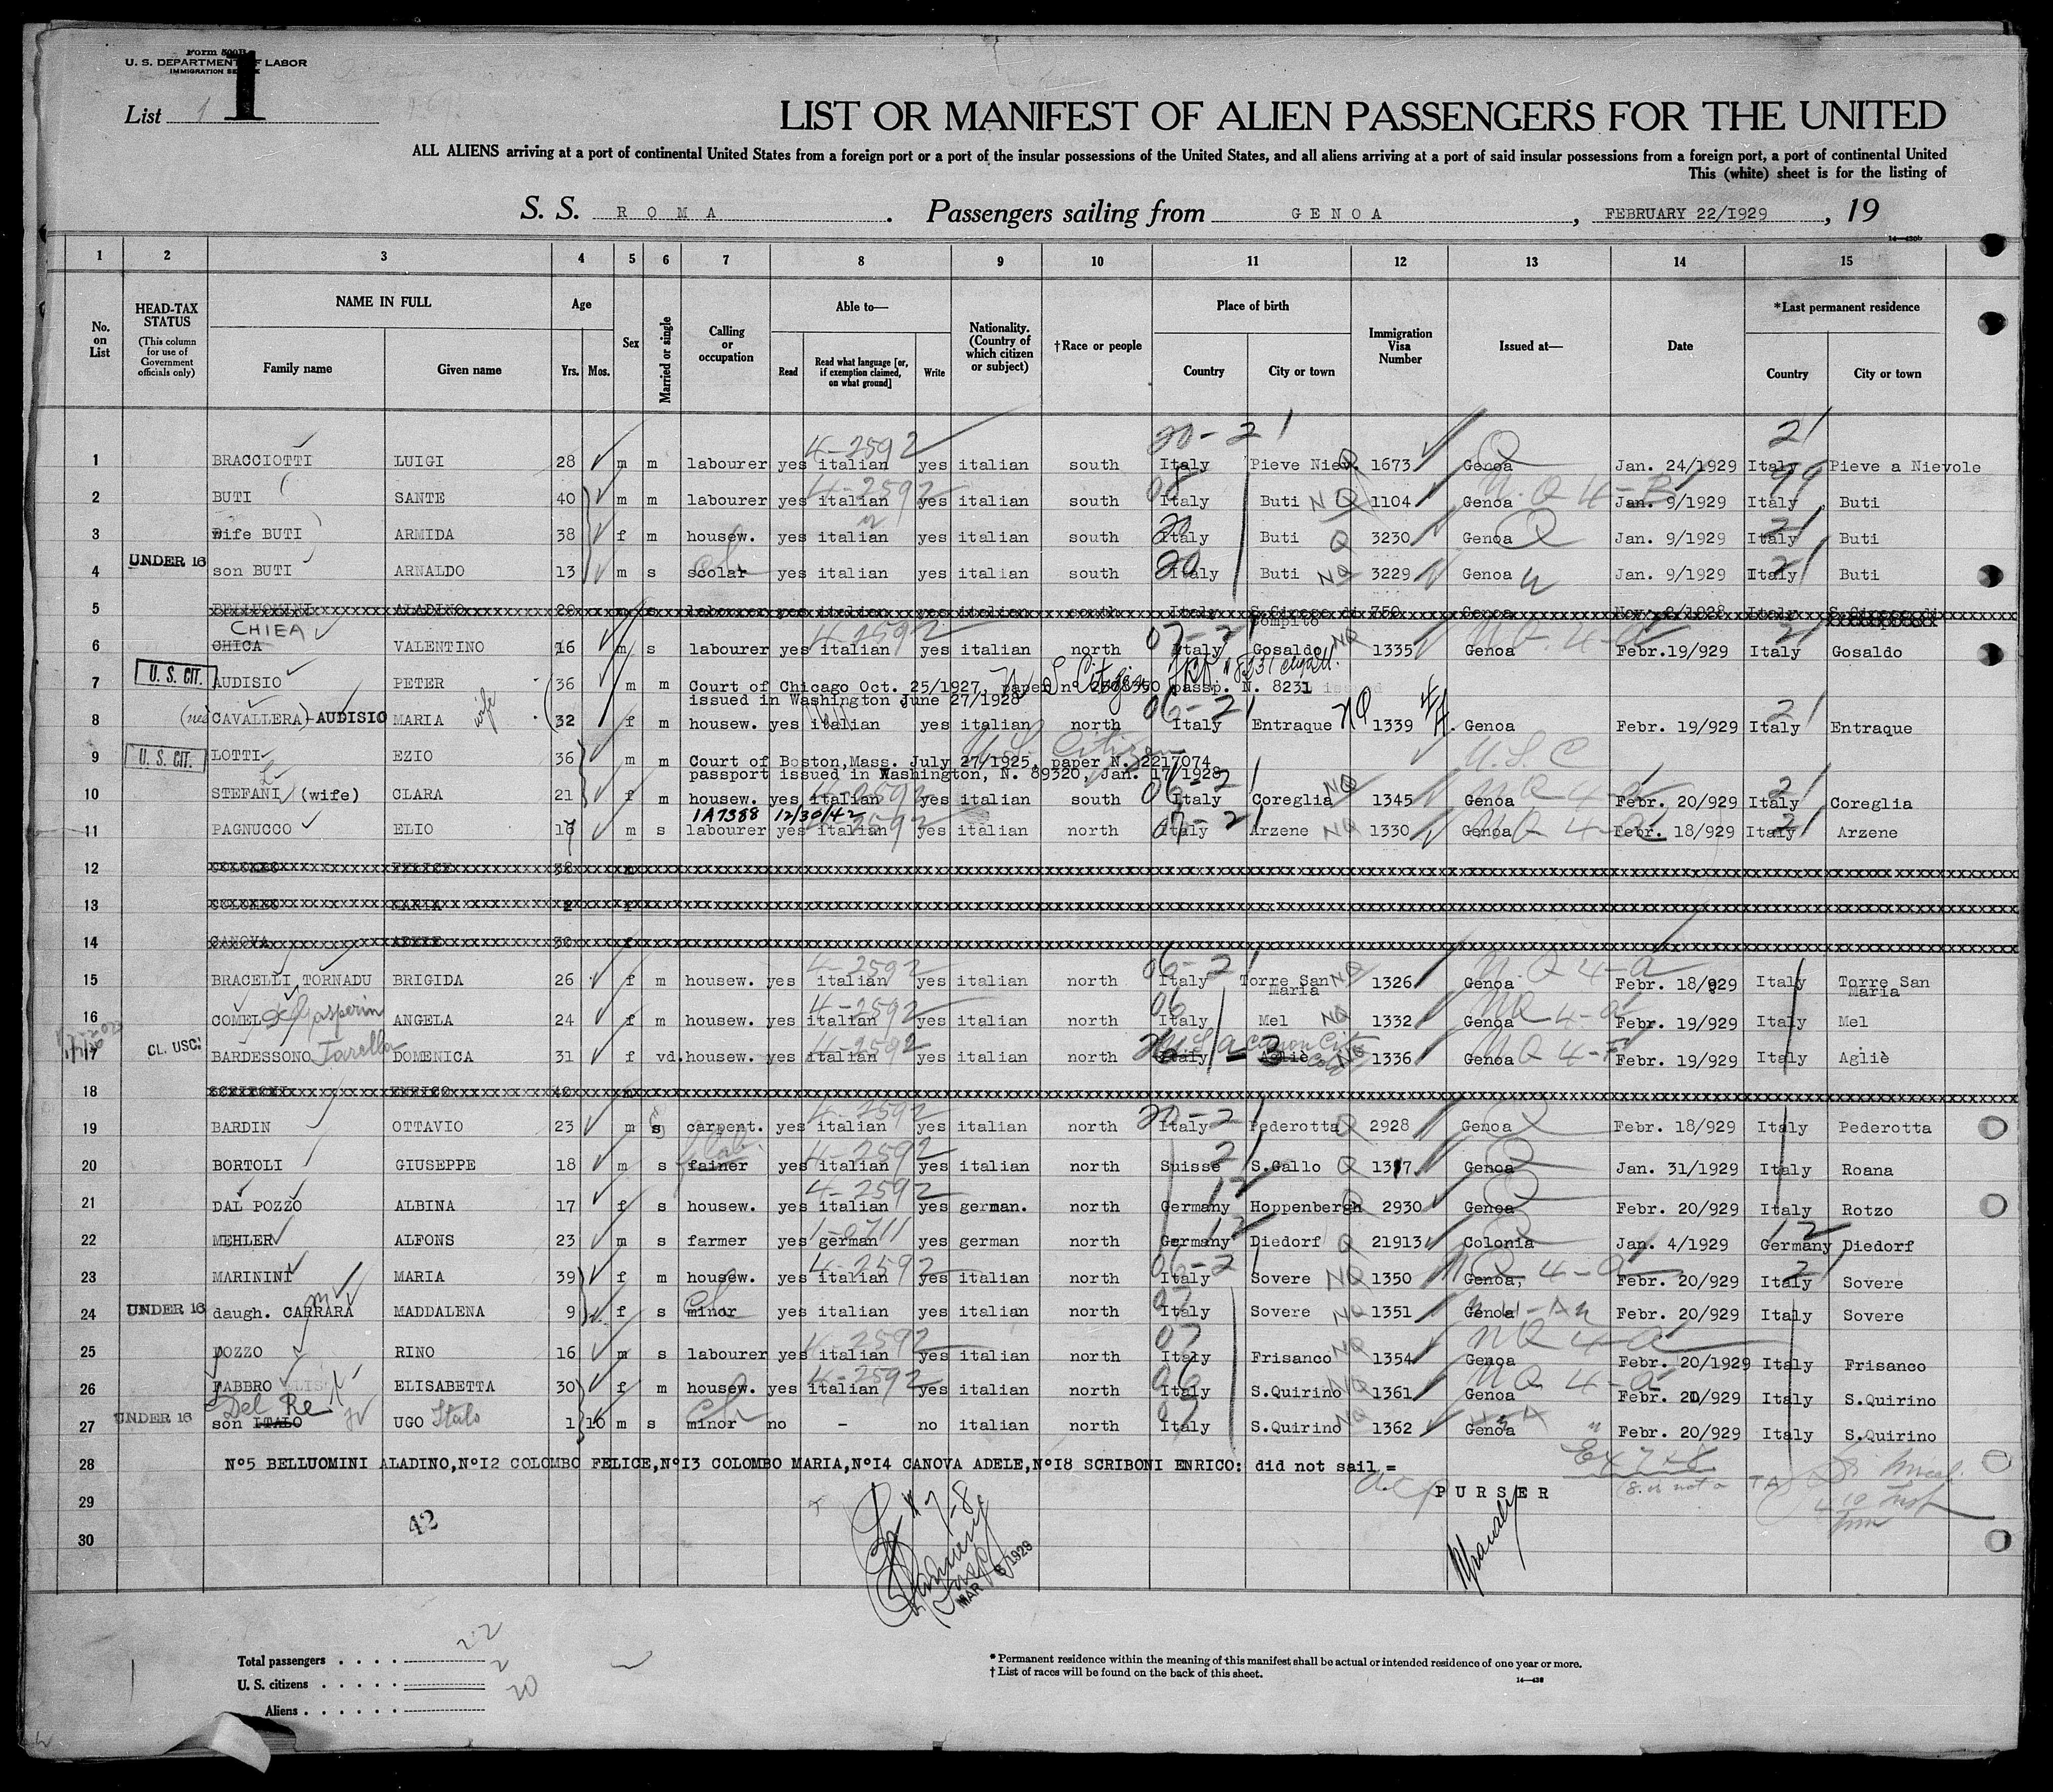 Form 500B
U. S. DEPARTMENT OF LABOR
IMMIGRATION SERVICE
1
List 1
LIST OR MANIFEST OF ALIEN PASSENGERS FOR THE UNITED
ALL ALIENS arriving at a port of continental United States from a foreign port or a port of the insular possessions of the United States, and all aliens arriving at a port of said insular possessions from a foreign port, a port of continental United
This (white) sheet is for the listing of
S. S. ROMA. Passengers sailing from GENOA, FEBRUARY 22/1929, 19
1 2 3 4 5 6 7 8 9 10 11 12 13 14 15
No. on List
HEAD-TAX STATUS (This column for use of Government officials only)
NAME IN FULL
Family name Given name
Age
Yrs. Mos.
Sex
Married or single
Calling or occupation
Able to—
Read Read what language [or, if exemption claimed, on what ground] Write
Nationality. (Country of which citizen or subject)
†Race or people
Place of birth
Country City or town
Immigration Visa Number
Issued at—
Date
*Last permanent residence
Country City or town
20-21 21
4-2592
1 BRACCIOTTI LUIGI 28 m m labourer yes italian yes italian south Italy Pieve Niev. Q 1673 Genoa Jan. 24/1929 Italy Pieve a Nievole
2 BUTI SANTE 40 m m labourer yes italian yes italian south Italy Buti NQ 1104 Genoa Jan. 9/1929 Italy Buti
3 wife BUTI ARMIDA 38 f m housew. yes italian yes italian south Italy Buti Q 3230 Genoa Jan. 9/1929 Italy Buti
UNDER 16
4 son BUTI ARNALDO 13 m s scolar yes italian yes italian south Italy Buti NQ 3229 Genoa Jan. 9/1929 Italy Buti
5 BELLUOMINI ALADINO
CHIEA
6 CHICA VALENTINO 16 m s labourer yes italian yes italian north Italy Gosaldo NQ 1335 Genoa Febr.19/929 Italy Gosaldo
U. S. CIT.
7 AUDISIO PETER 36 m m Court of Chicago Oct. 25/1927, paper n° passp. N. 8231
issued in Washington June 27/1928
8 (neé CAVALLERA)-AUDISIO MARIA wife 32 f m housew. yes italian yes italian north Italy Entraque NQ 1339 Genoa Febr. 19/929 Italy Entraque
U. S. CIT.
9 LOTTI EZIO 36 m m Court of Boston,Mass. July 27/1925, paper N. 2217074
U.S. Citizen U.S.C
passport issued in Washington, N. 89320, Jan. 17/1928
10 STEFANI (wife) CLARA 21 f m housew. yes italian yes italian south Italy Coreglia NQ 1345 Genoa Febr. 20/929 Italy Coreglia
12/30/42
11 PAGNUCCO ELIO m s labourer yes italian yes italian north Italy Arzene NQ 1330 Genoa Febr. 18/929 Italy Arzene
12 COLOMBO FELICE 38 m
13 COLOMBO MARIA f
14 CANOVA ADELE 30 f
15 BRACELLI TORNADU BRIGIDA 26 f m housew. yes italian yes italian north Italy Torre San Maria NQ 1326 Genoa Febr. 18/929 Italy Torre San Maria
16 COMEL Gasperin ANGELA 24 f m housew. yes italian yes italian north Italy Mel NQ 1332 Genoa Febr. 19/929 Italy Mel
CL. USC.
17 BARDESSONO Tarella DOMENICA 31 f vd. housew. yes italian yes italian north Italy Agliè NQ 1336 Genoa Febr. 19/929 Italy Agliè
18 SCRIBONI ENRICO 40 m
19 BARDIN OTTAVIO 23 m s carpent. yes italian yes italian north Italy Pederotta Q 2928 Genoa Febr. 18/929 Italy Pederotta
20 BORTOLI GIUSEPPE 18 m s fainer yes italian yes italian north Suisse S.Gallo Q 1317 Genoa Jan. 31/1929 Italy Roana
21 DAL POZZO ALBINA 17 f s housew. yes italian yes german. north Germany Hoppenbergh 2930 Genoa Febr. 20/929 Italy Rotzo
1-0711
22 MEHLER ALFONS 23 m s farmer yes german yes german north Germany Diedorf Q 21913 Colonia Jan. 4/1929 Germany Diedorf
23 MARININI MARIA 39 f m housew. yes italian yes italian north Italy Sovere NQ 1350 Genoa, Febr. 20/929 Italy Sovere
UNDER 16
24 daugh. CARRARA MADDALENA 9 f s minor yes italian yes italian north Italy Sovere NQ 1351 Genoa Febr. 20/929 Italy Sovere
25 POZZO RINO 16 m s labourer yes italian yes italian north Italy Frisanco NQ 1354 Genoa Febr. 20/1929 Italy Frisanco
26 FABBRO ELISABETTA 30 f m housew. yes italian yes italian north Italy S.Quirino NQ 1361 Genoa Febr. 20/929 Italy S.Quirino
Del Re
UNDER 16
27 son ITALO UGO Italo 1 10 m s minor no - no italian north Italy S.Quirino NQ 1362 Genoa Febr. 20/929 Italy S.Quirino
28 N°5 BELLUOMINI ALADINO,N°I2 COLOMBO FELICE,N°I3 COLOMBO MARIA,N°I4 CANOVA ADELE,N°I8 SCRIBONI ENRICO: did not sail =
PURSER
29
42
30
MAR 1929
Total passengers . . . . 22
U. S. citizens . . . . . 2
Aliens . . . . . . 20
* Permanent residence within the meaning of this manifest shall be actual or intended residence of one year or more.
† List of races will be found on the back of this sheet.
14—438